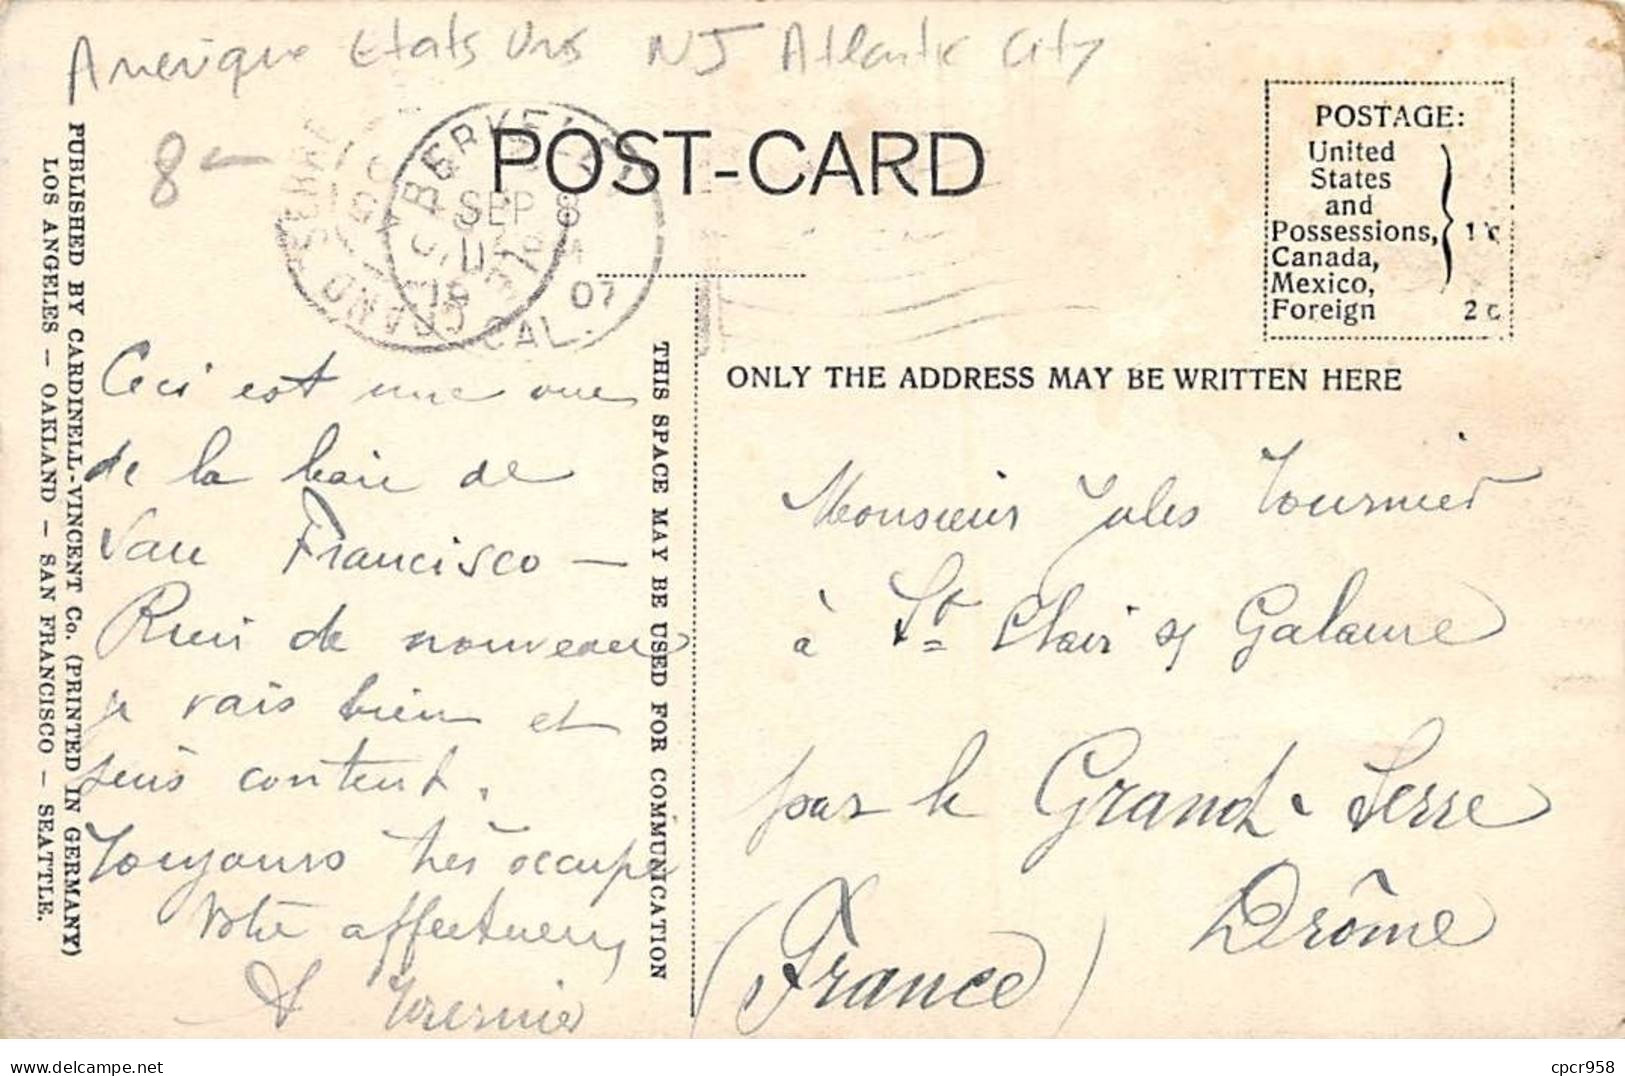 Amérique Etats Unis NJ Atlantic City
8
POST-CARD
BERKELEY
SEP 8
07
CAL.
LE GRAND SERRE
POSTAGE:
United
States
and
Possessions, 1 c
Canada,
Mexico,
Foreign 2 c
PUBLISHED BY CARDINELL-VINCENT Co. (PRINTED IN GERMANY)
LOS ANGELES — OAKLAND — SAN FRANCISCO — SEATTLE.
THIS SPACE MAY BE USED FOR COMMUNICATION
ONLY THE ADDRESS MAY BE WRITTEN HERE
Ceci est une vue
de la baie de
San Francisco —
Rien de nouveau
je vais bien et
suis content.
Toujours très occupé
Votre affectueux
A Tournier
Monsieur Jules Tournier
à St Clair s/ Galaure
par le Grand-Serre
Drôme
(France)
cpcr958